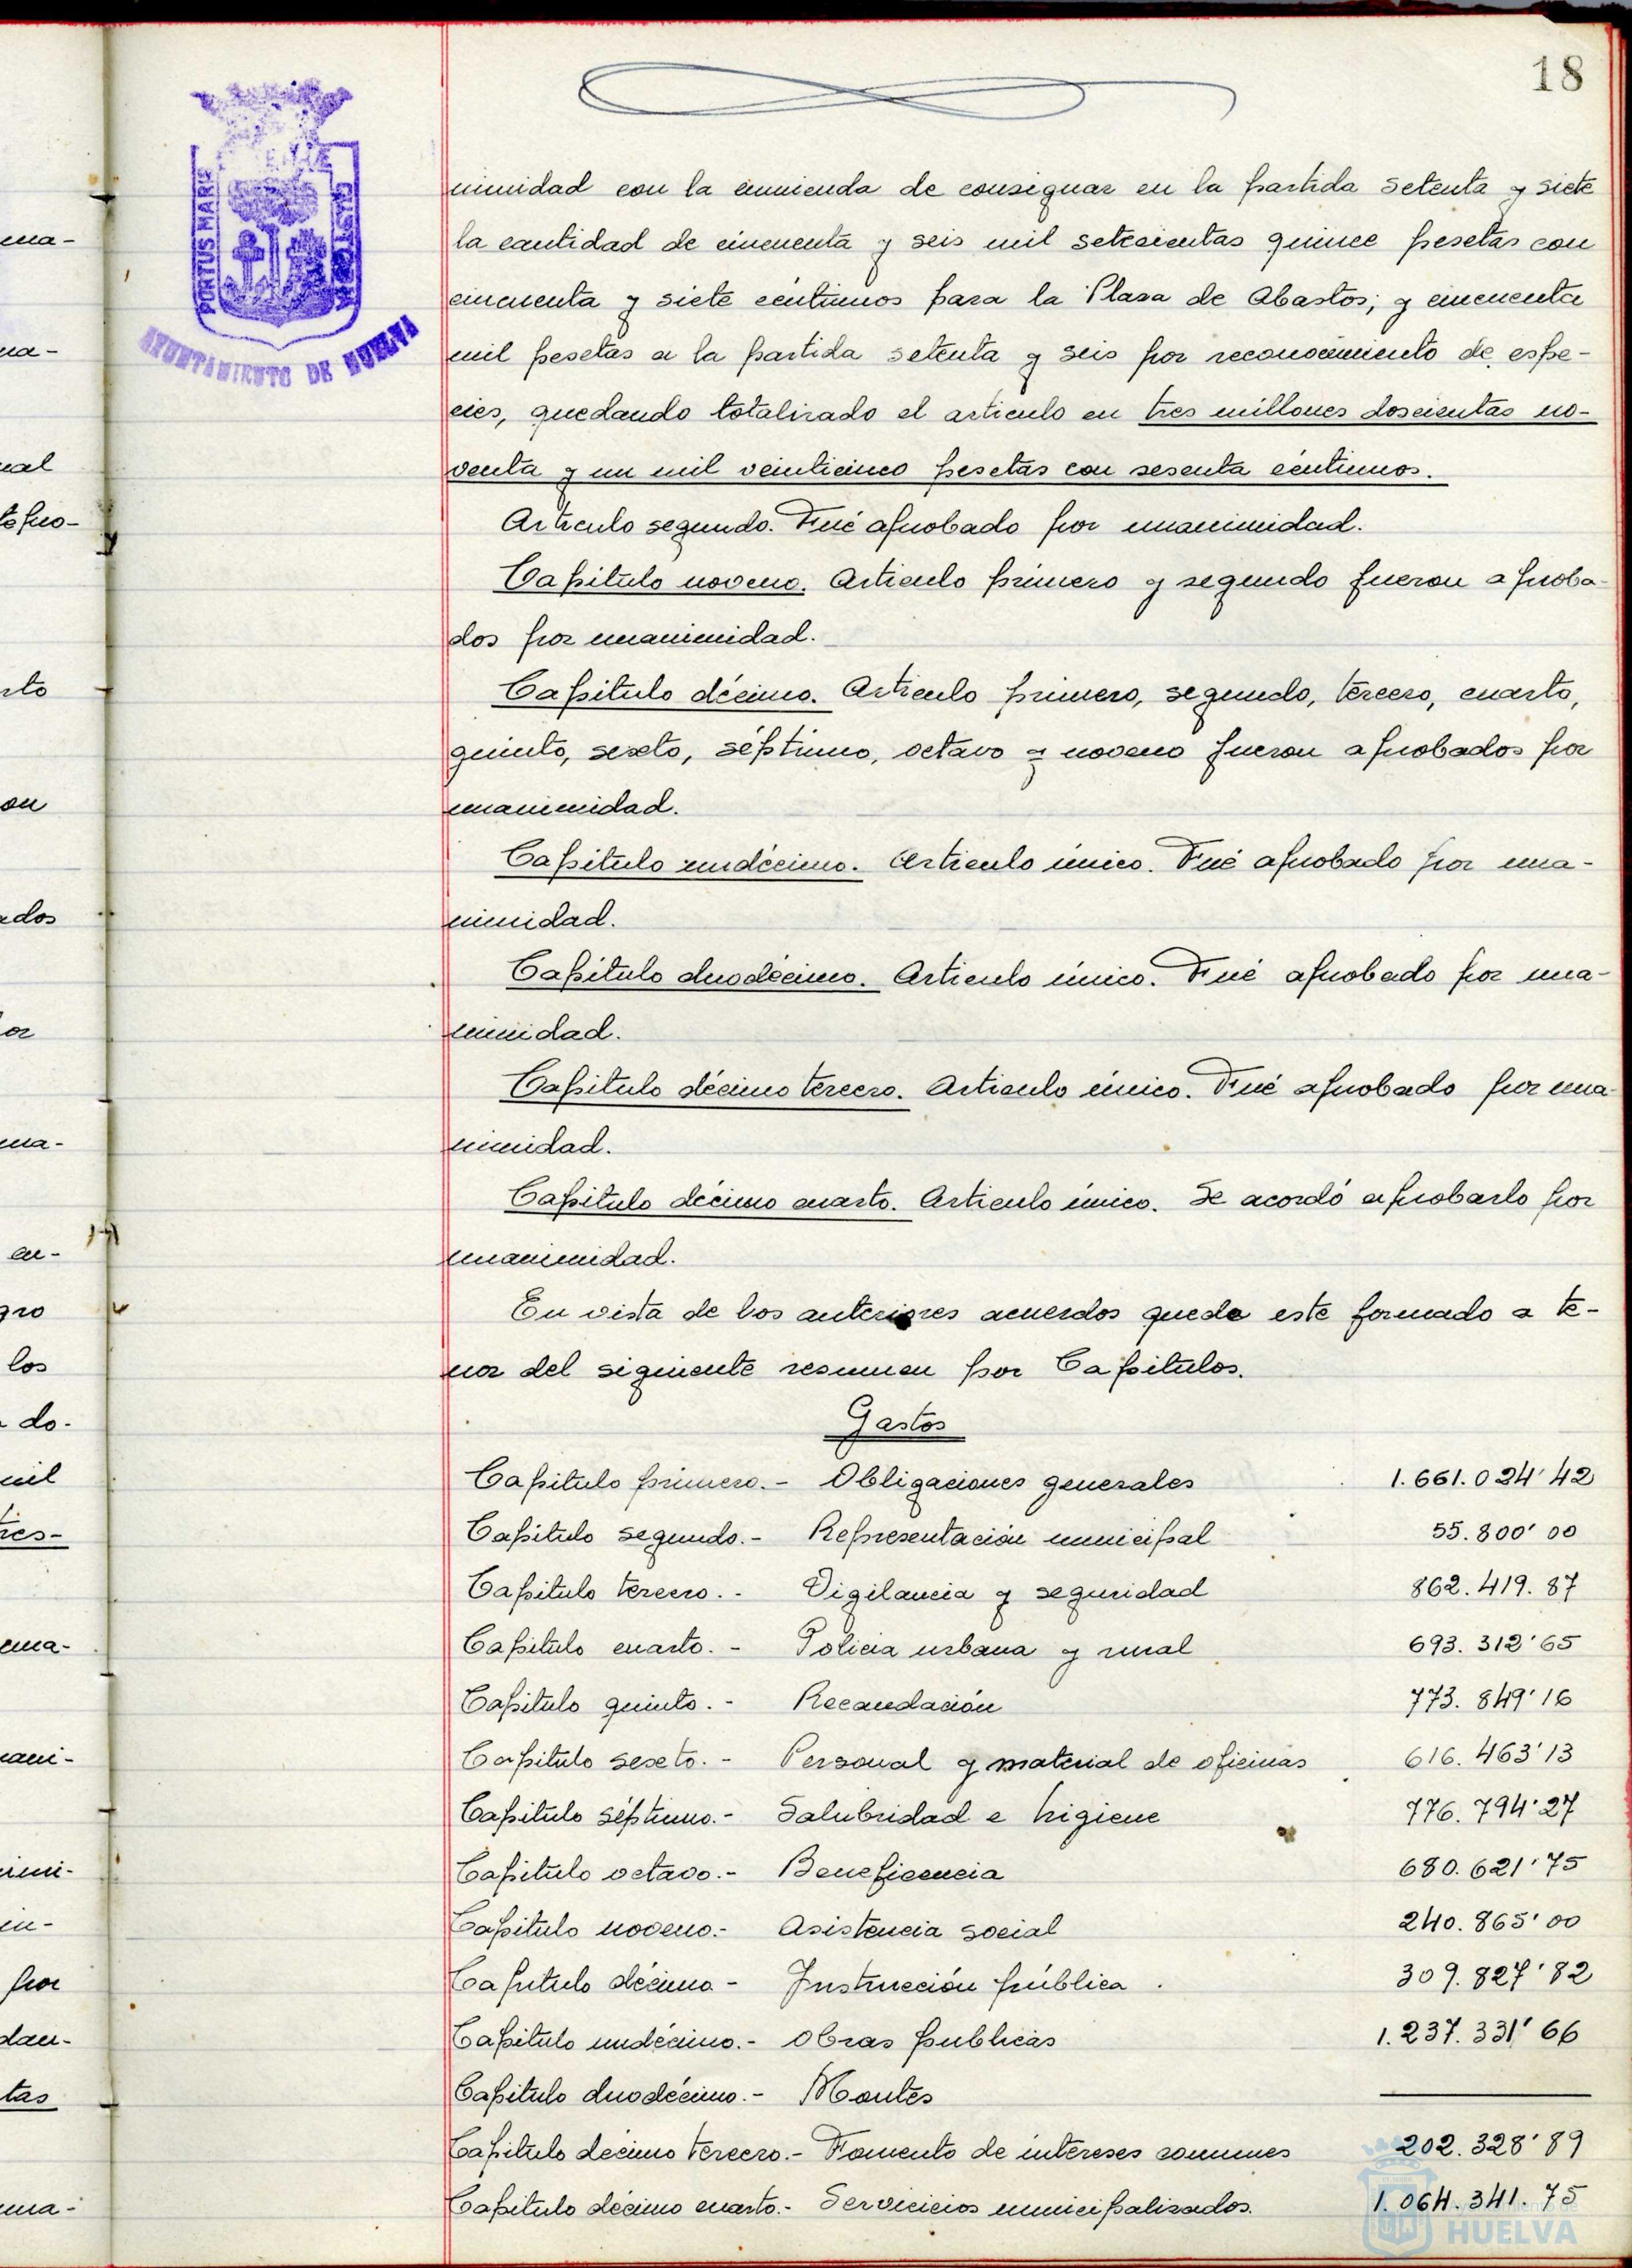 18
PORTUS MARIS
AYUNTAMIENTO DE HUELVA
nimidad con la enmienda de consignar en la partida setenta y siete
la cantidad de cincuenta y seis mil setecientas quince pesetas con
cincuenta y siete céntimos para la Plaza de Abastos; y cincuenta
mil pesetas a la partida setenta y seis por reconocimiento de espe-
cies, quedando totalizado el articulo en tres millones doscientas no-
venta y un mil veinticinco pesetas con sesenta céntimos.
Articulo segundo. Fué aprobado por unanimidad.
Capitulo noveno. Articulo primero y segundo fueron aproba-
dos por unanimidad.
Capitulo décimo. Articulo primero, segundo, tercero, cuarto,
quinto, sexto, séptimo, octavo y noveno fueron aprobados por
unanimidad.
Capitulo undécimo. Articulo único. Fué aprobado por una-
nimidad.
Capitulo duodécimo. Articulo único. Fué aprobado por una-
nimidad.
Capitulo décimo tercero. Articulo único. Fué aprobado por una
nimidad.
Capitulo décimo cuarto. Articulo único. Se acordó aprobarlo por
unanimidad.
En vista de los anteriores acuerdos queda este formado a te-
nor del siguiente resumen por Capitulos.
Gastos
Capitulo primero.- Obligaciones generales 1.661.024'42
Capitulo segundo.- Representación municipal 55.800'00
Capitulo tercero.- Vigilancia y seguridad 862.419.87
Capitulo cuarto.- Policia urbana y rural 693.312'65
Capitulo quinto.- Recaudación 773.849'16
Capitulo sexto.- Personal y material de oficinas 616.463'13
Capitulo séptimo.- Salubridad e higiene 776.794'27
Capitulo octavo.- Beneficencia 680.621'75
Capitulo noveno.- Asistencia social 240.865'00
Capitulo décimo- Instrucción pública 309.827'82
Capitulo undécimo.- Obras publicas 1.237.331'66
Capitulo duodécimo.- Montes
Capitulo décimo tercero.- Fomento de intereses comunes 202.328'89
Capitulo décimo cuarto.- Servicicios municipalizados. 1.064.341.75
HUELVA